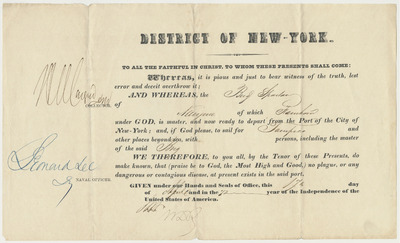 DISTRICT OF NEW-YORK.
TO ALL THE FAITHFUL IN CHRIST, TO WHOM THESE PRESENTS SHALL COME:
Whereas, it is pious and just to bear witness of the truth, lest
error and deceit overthrow it;
AND WHEREAS, the Brig
of of which
under GOD, is master, and now ready to depart from the Port of the City of
New-York; and, if God please, to sail for Tampico and
other places beyond sea, with persons, including the master
of the said Brig
WE THEREFORE, to you all, by the Tenor of these Presents, do
make known, that (praise be to God, the Most High and Good,) no plague, or any
dangerous or contagious disease, at present exists in the said port.
GIVEN under our Hands and Seals of Office, this day
of and in the year of the Independence of the
United States of America.
COLLECTOR.
Leonard Lee
NAVAL OFFICER.